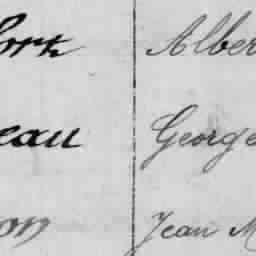 Alber
eau George
on Jean M